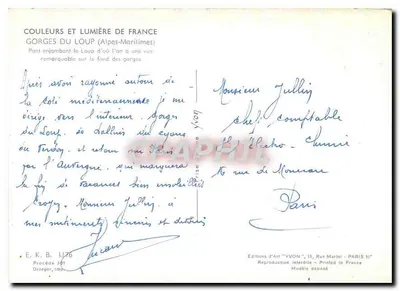 COULEURS ET LUMIÈRE DE FRANCE
GORGES DU LOUP (Alpes-Maritimes)
Pont enjambant le Loup d'où l'on a une vue
remarquable sur le fond des gorges
Après avoir rayonné autour de
la côte méditerranéenne je me
dirige vers l'intérieur. Gorges
du Loup, de
du Verdon, et retour sur Paris
par l'Auvergne, qui marquera
la fin de vacances bien ensoleillées
Croyez, Monsieur Jullien, à
mes sentiments
Monsieur Jullien
chef comptable
rue de Monceau
Paris
YVON
E. K. B. 1176
Procédé
Draeger, imp.
Editions d'Art "YVON", 15, Rue Martel - PARIS Xe
Reproduction interdite - Printed in France
Modèle déposé